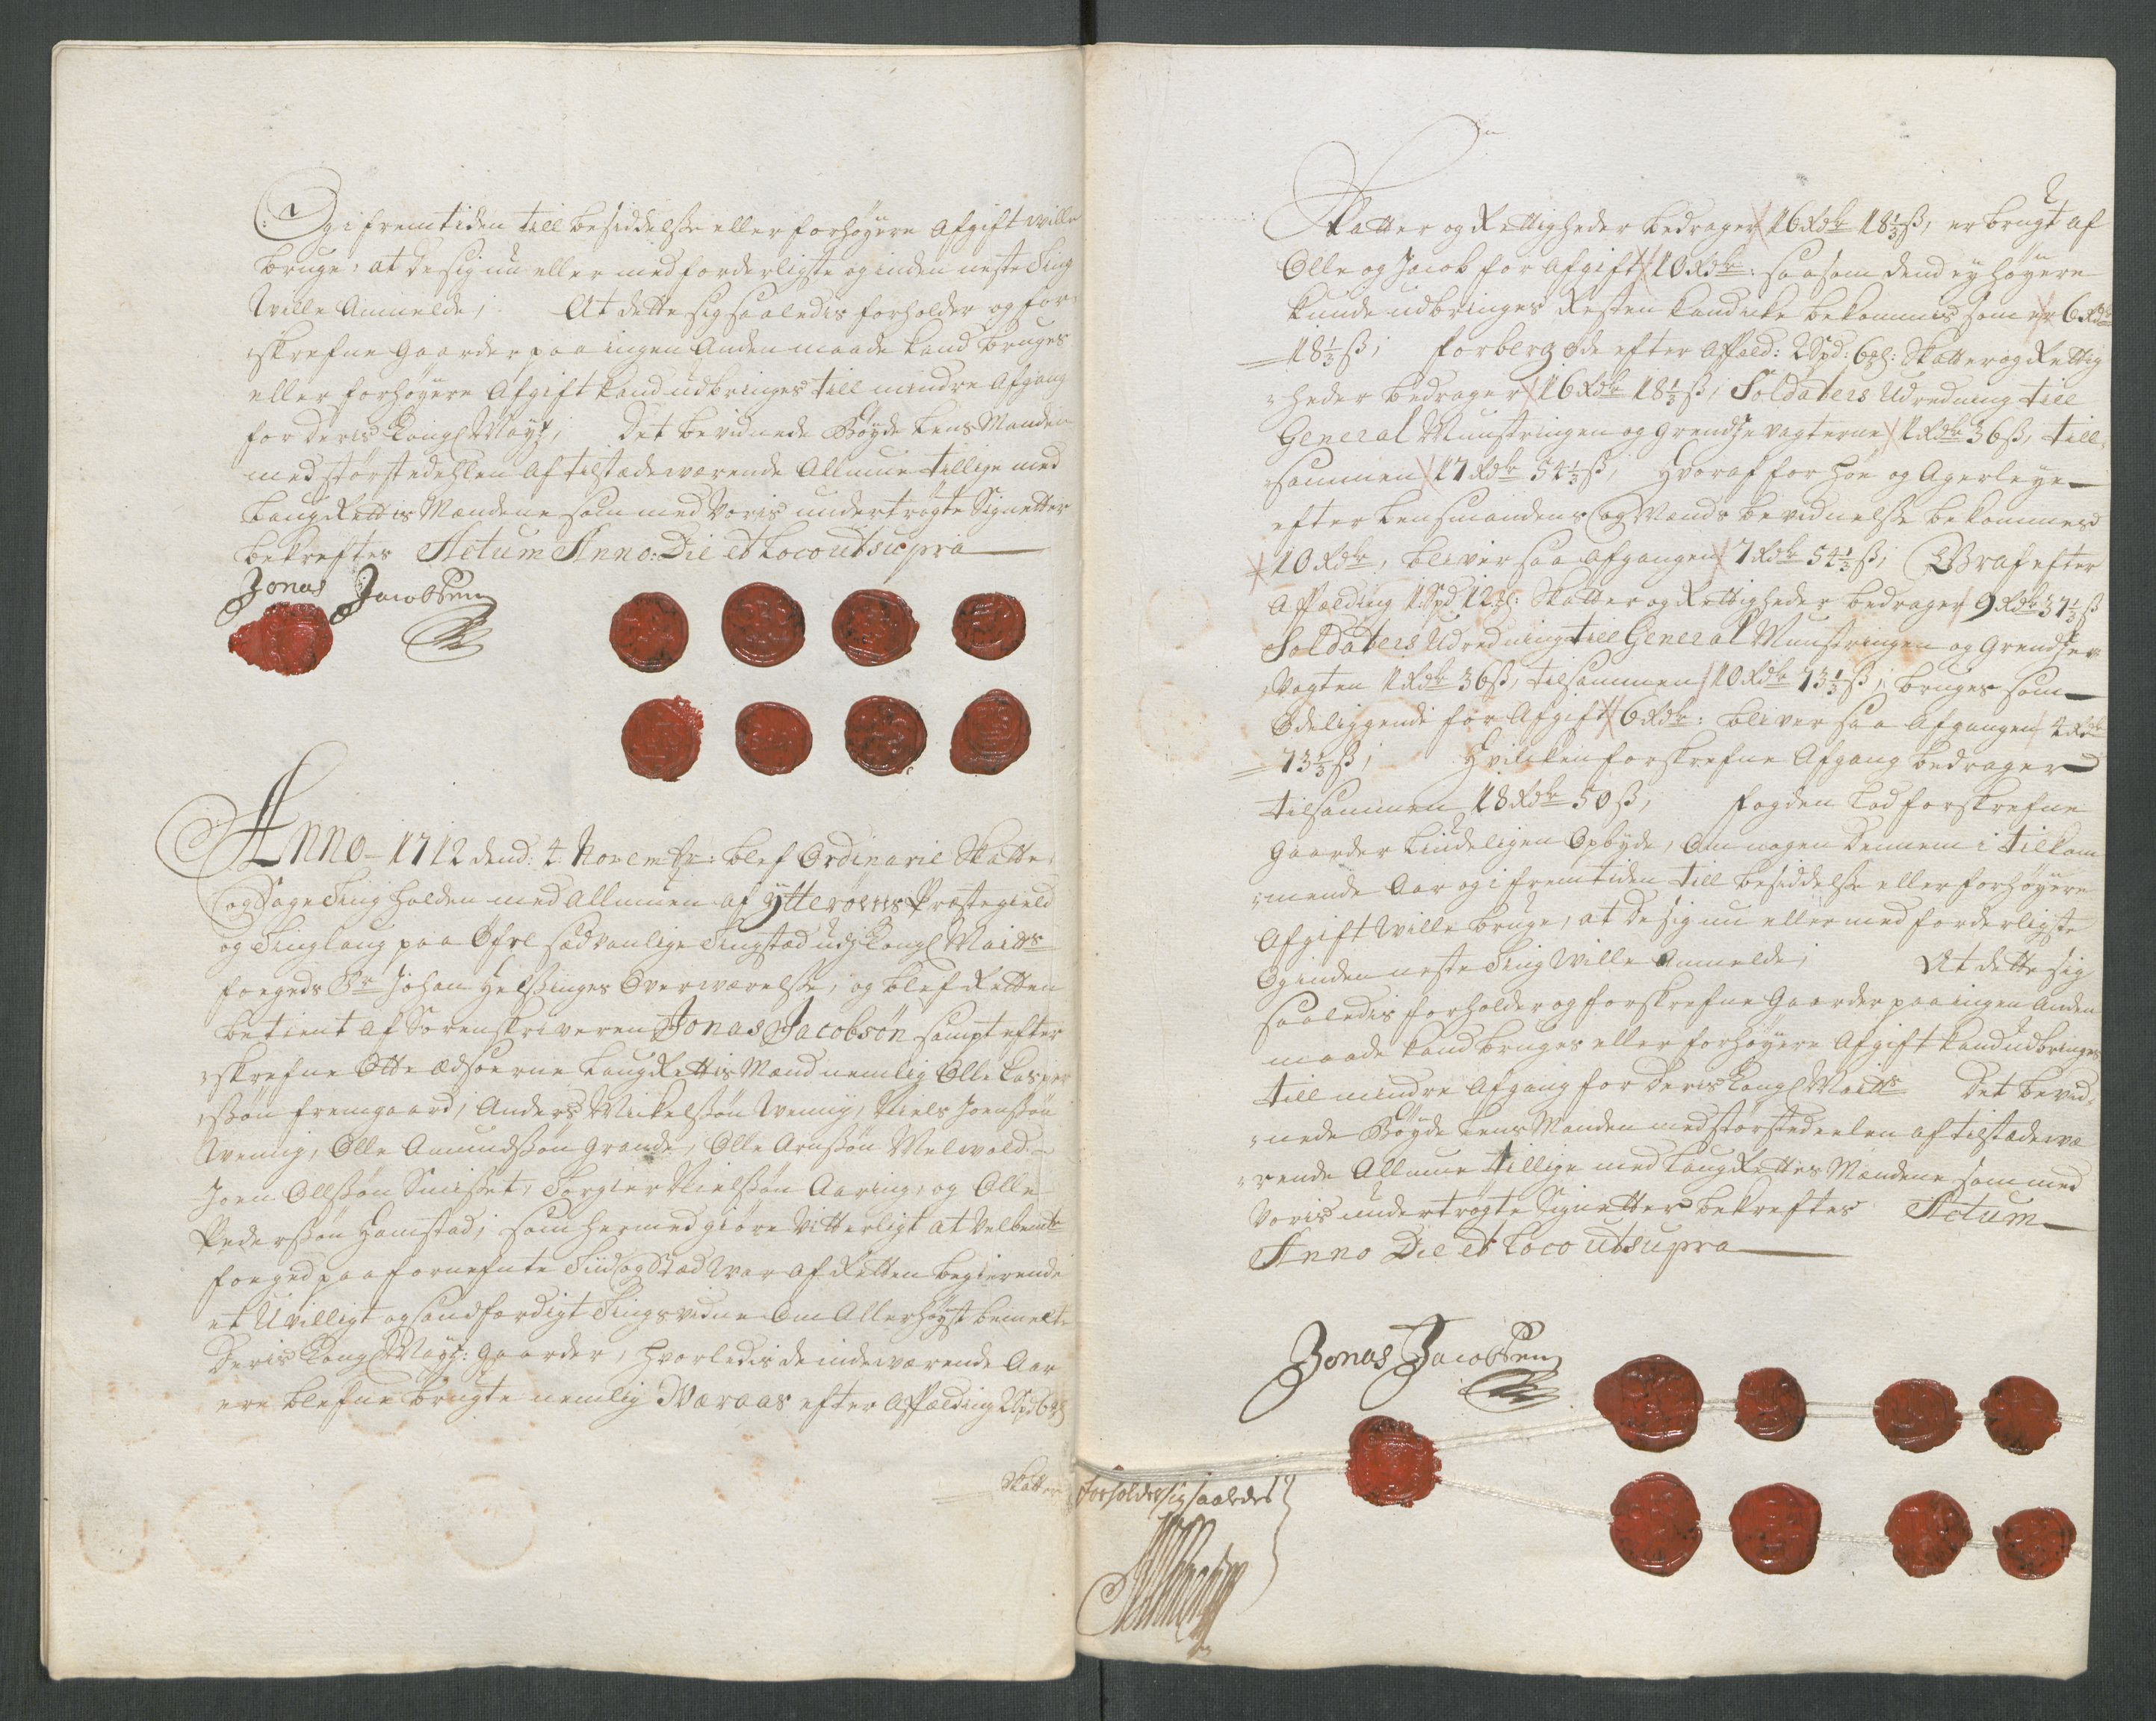 Og i fremtiden till besiddelsse eller forhøyere Afgift wille
bruge, at de sig nu eller med forderligste og inden neste Ting
wille Anmelde; At dette sig saaledis forholder og for-
skrefne Gaarder paa ingen Anden maade kand bruges
eller forhøyere Afgift kand udbringes till mindre Afgang
for deris Kongl May:; Det bevidnede Bøyde Lens Manden
med størstedehlen af tilstædeværende Allmue tillige med
LaugRettis Mændene som med Voris undertrøgte Signetter
bekreftes Actum Anno: Die et Loco ut supra
Jonas Jacobsen
Anno 1712 dend: 4 Novembr: blef Ordinarie Skatte
og Sageting holden med Allmuen af Ytterøens Præstegield
og Tinglaug paa sædvanlige Tingstæd udj Kongl Maitts
Foegeds Sr Johan Helssinges Overværelsse, og blef Retten
betient af Sorenskriveren Jonas Jacobsøn sampt efter
skrefne Otte Ædsorne LaugRettis Mænd nemlig Olle
ssøn Fremgaard, Anders Mickelssøn Wennig, Niels Joenssøn
Wennig, Olle Amundssøn Grande, Olle Arnssøn Melwold
Joen Ollssøn Torgier Nielssøn Aaring, og Olle
Pederssøn Hamstad; som hermed giøre Vitterligt at Velbemte
foeged paa fornefnte Tiid og Stæd War af Retten begierende
et Uvilligt og sandfærdigt Tingsvidne Om Allerhøyst bemelte
Deris Kongl May: Gaarder, hvorledis de indeværende Aar
ere blefne brugte nemlig Waraas efter Affælding 2 Spd 6
Skatter
Skatter og Rettigheder bedrager 16 Rdr 18 1/3 ß, er brugt af
Olle og Jacob for Afgift 10 Rdr: saasom dend ey høyere
kunde udbringes Resten kand icke bekommes som er 6 Rdr
18 1/3 ß; Forberg øde efter Affæld: 2 Spd: 6: Skatter og Rettig
heder bedrager 16 Rdr 18 1/3 ß, Soldatens Udredning till
General Munstringen og Grendse vagterne 1 Rdr 36 ß, till-
sammen 17 Rdr 54 1/3 ß, Hvoraf for Høe og Agerleye
efter Lensmandens og Mænds bevidnelsse bekommes
10 Rdr, bliver saa Afgangen 7 Rdr 54 1/3 ß; efter
Affælding 1 Spd 12: Skatter og Rettigheder bedrager 9 Rdr 37 1/3 ß
Soldatens Udredning till General Munstringen og Grendse-
Vagten 1 Rdr 36 ß, tilsammen 10 Rdr 73 1/3 ß, bruges som
Ødeliggende for Afgift 6 Rdr: bliver saa Afgangen 4 Rdr
73 1/3 ß; Hvilcken forskrefne Afgang bedrager
tilsammen 18 Rdr 50 ß, Fogden lod forskrefne
Gaarder liudeligen Opbyde, Om nogen Dennem i tilkom
mende Aar og i fremtiden till besiddelsse eller forhøyere
Afgift Wille bruge, at de sig nu eller med forderligste
Og inden neste Ting Wille Anmelde; At dette sig
saaledis forholder og forskrefne Gaarder paa ingen Anden
maade kand bruges eller forhøyere Afgift kand udbringes
till mindre Afgang for Deris Kongl Maitts Det bevid-
nede Bøyde Lens Manden med størstedeelen af tilstædewæ
rende Allmue tillige med LaugRettis Mændene som med
Voris undertrøgte Signetter bekreftes Actum
Anno Die et Loco ut supra
Jonas Jacobsen
Forholder sig saaledes